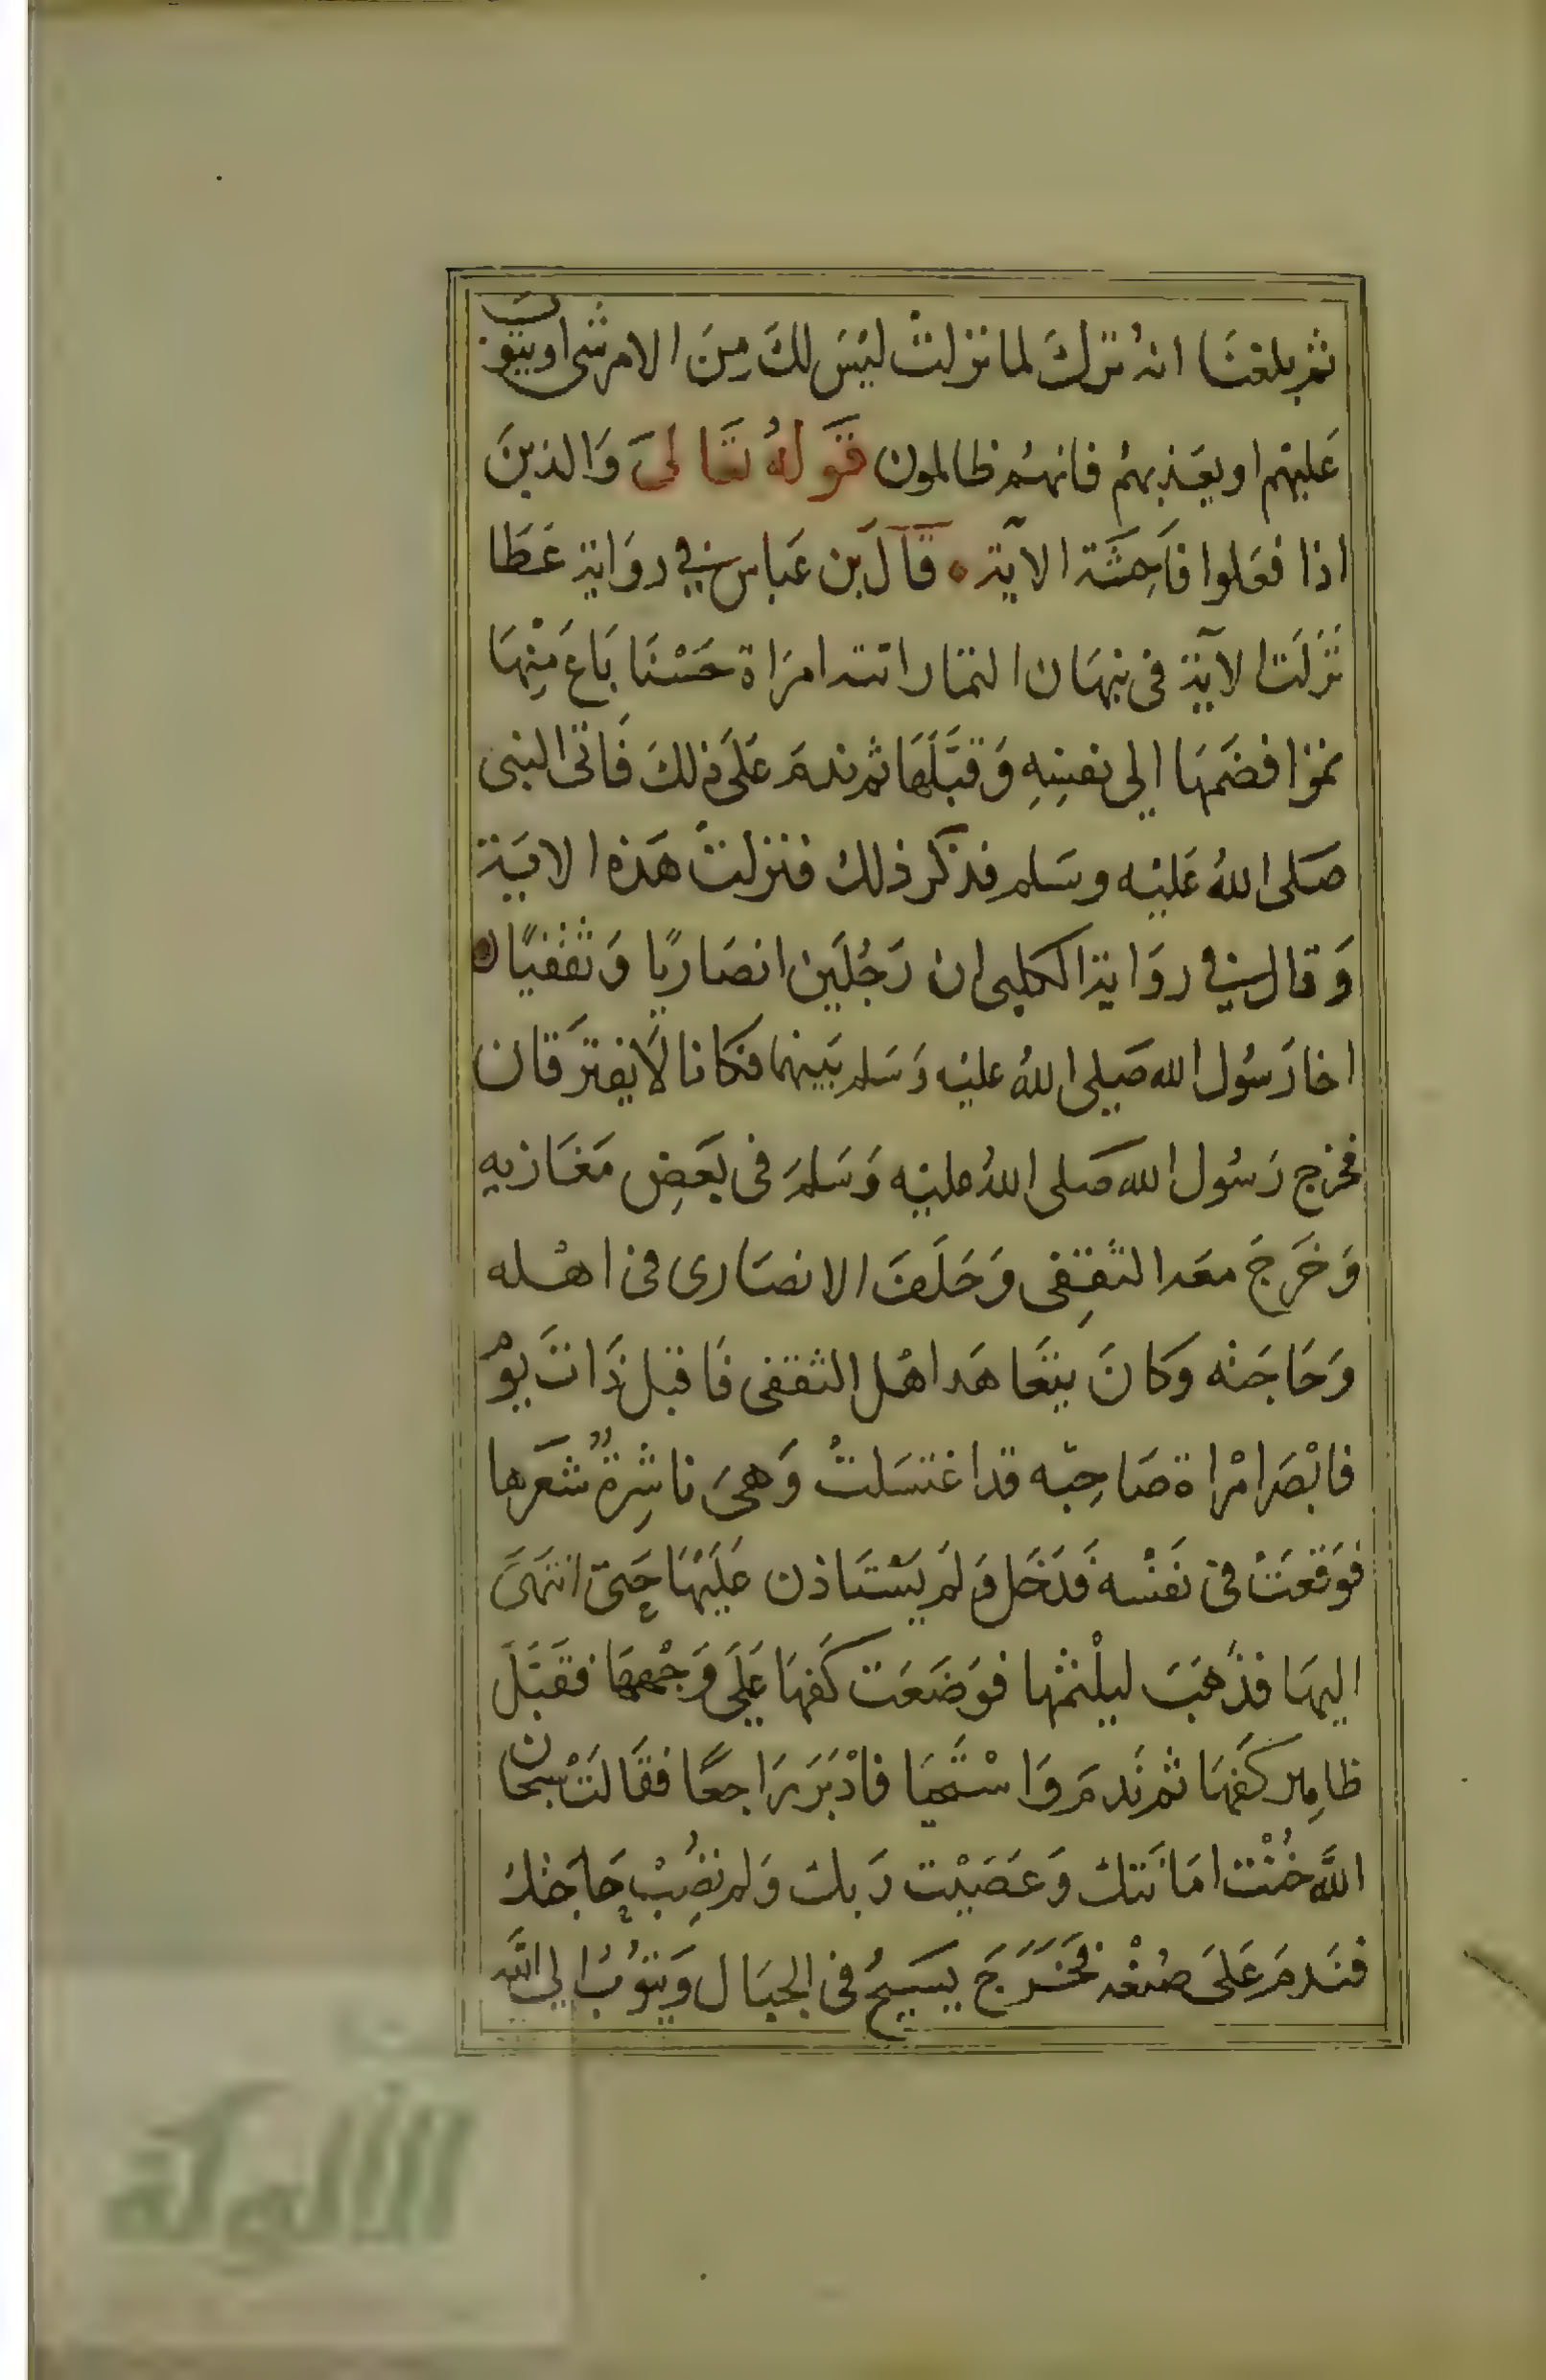 ثم بلغنَا انهُ تركَ لما نزلتْ ليْسَ لكَ مِنَ الامر شى او يتوبَ
عَليهم او يعَذبهمُ فانهُم ظالمون قوَلهُ تعَالىَ وَالذينَ
اذا فعَلوا فاَحِشَة الآية قالَ بن عَباس في روَاية عَطَا
نَزلَت الآية فى نبهَان التمَار اتته امرَاة حَسْنَا بَاعَ مِنْهَا
تمرا فضَمهَا إلى نفسِهِ وَقبَّلَهَا ثم ندمَ عَلَى ذلكَ فَاتى النبى
صَلى اللهُ عَليْه وسَلم فذكَر ذلك فنزلتْ هَذه الايَة
وَقال في روَاية الكلبى ان رَجُلَين انصَاريًا وَثقفيًا
اخا رَسُول الله صَلى اللهُ عليْه وَسَلم بَينهما فكَانا لَا يفترَقان
فخرج رَسُول الله صَلى اللهُ عليْه وَسَلمَ فى بَعَضِ مَغَازيه
وَخَرجَ معَه الثقِفى وَخلَفَ الانصَارى فى اهْله
وَحَاجَته وَكانَ يتعَاهَد اهْل الثقفى فَاقبل ذَاتَ يوْم
فابْصَر امْراة صَاحِبه قد اغتسَلتْ وَهىَ ناشِرةٌ شعَرها
فوَقعَتْ فى نفَسْه فَدَخَل وَلمَ يَسْتَاذن عَليَهَا حَتىّ انتهَىَ
اليهَا فذَهبَ ليلْثمْها فوَضَعَت كَفهَا عَلَى وَجْهِهَا فقَبَّلَ
ظاهِر كَفهَا ثم نَدمَ وَاسْتَحيَا فادْبَرَ رَاجعًا فقَالَتْ سبحان
اللَّه خُنْت امَانَتك وَعَصَيْت رَبك وَلم تصُبْ حَاجَتك
فنَدمَ عَلىَ صُنعْه فخَرَجَ يسَيحُ فى الجبَال وَيتوُبُ إلى اللَّه
الألوكة